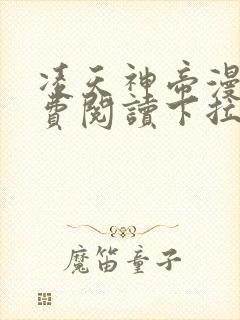 凌天神帝漫
費閱讀下拉
魔笛童子